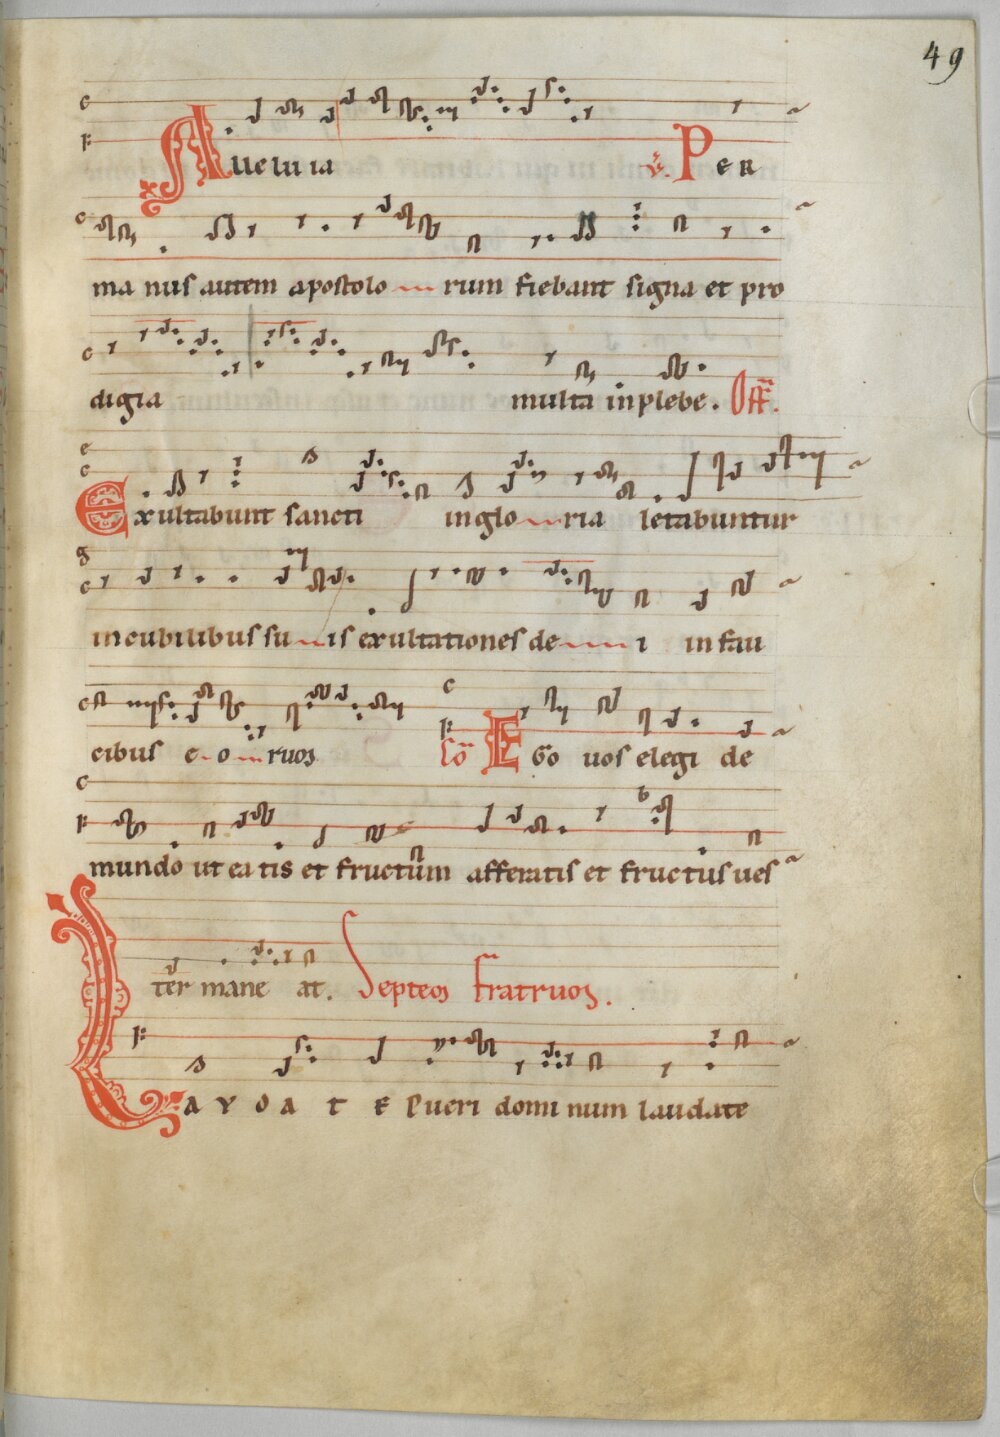 49
Alleluia ℣. Per
manus autem apostolo rum fiebant signa et pro
digia multa in plebe. Off.
Exultabunt sancti in glo ria letabuntur
in cubilibus su is exultationes de i in fau
cibus e o ruos
Co Ego uos elegi de
mundo ut eatis et fructum afferatis et fructus ues
ter mane at. Septeos fratruos.
Layda te Pueri dominum laudate